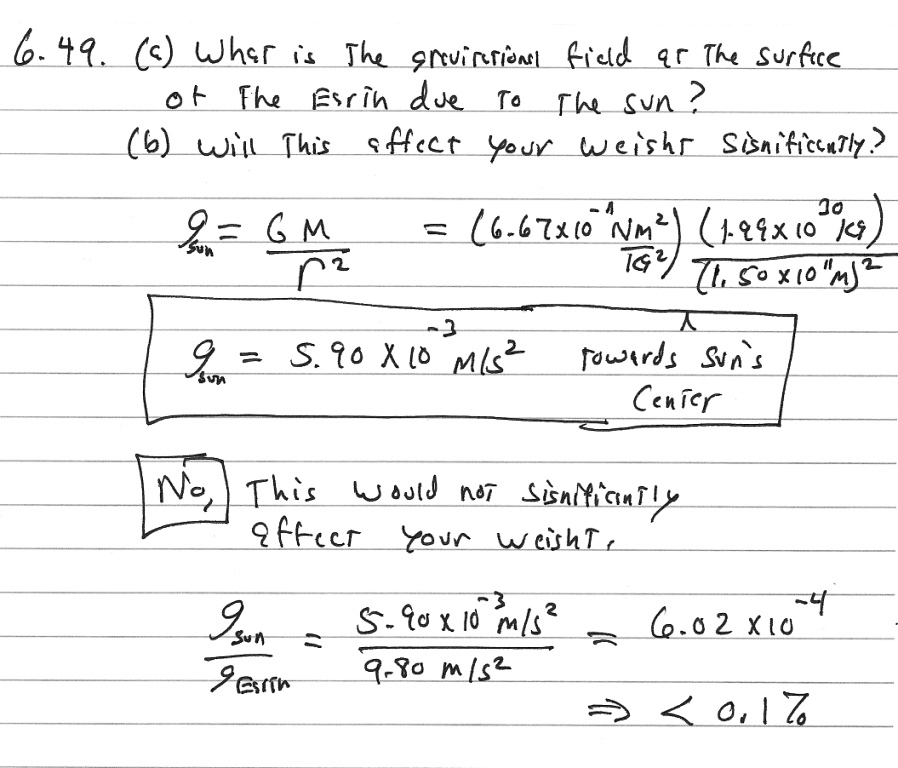 6.49. (a) What is The gravitational field at The surface
of The Earth due To The sun?
(b) Will This affect your weight significantly?
g_sun = GM/r² = (6.67x10^-11 Nm²/kg²) (1.99x10^30 kg)/(1.50x10^11 m)²
g_sun = 5.90 x 10^-3 m/s² Towards Sun's
Center
No, This would not significantly
affect your weight.
g_sun/g_Earth = 5.90x10^-3 m/s²/9.80 m/s² = 6.02 x10^-4
⇒ < 0.1%